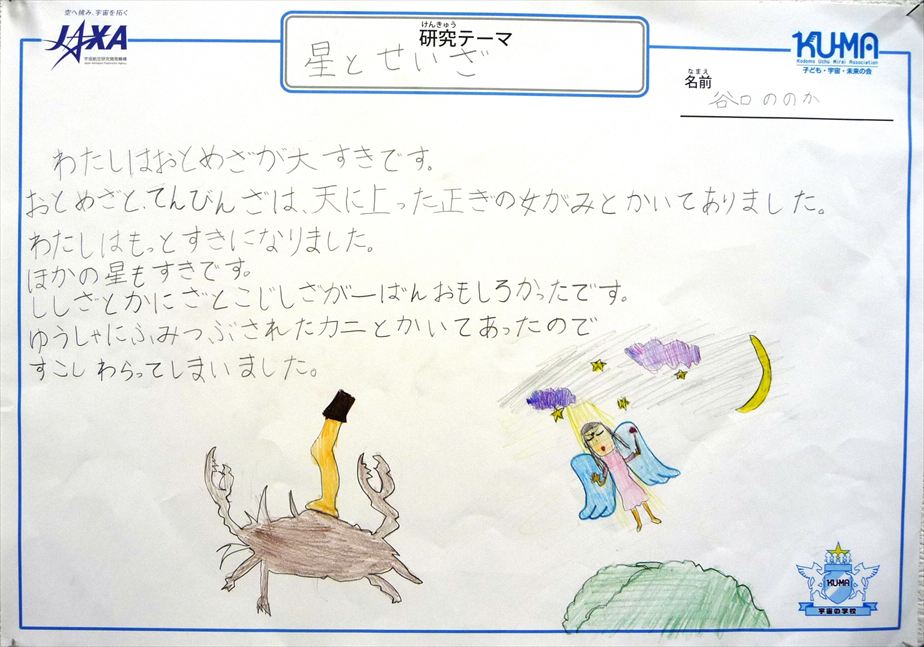 空へ挑み、宇宙を拓く
JAXA
宇宙航空研究開発機構
Japan Aerospace Exploration Agency
けんきゅう
研究テーマ
星とせいざ
KU-MA
Kodomo Uchu Mirai Association
子ども・宇宙・未来の会
なまえ
名前
谷口ののか
わたしはおとめざが大すきです。
おとめざと、てんびんざは、天に上った正ぎの女がみとかいてありました。
わたしはもっとすきになりました。
ほかの星もすきです。
ししざとかにざとこじしざが一ばんおもしろかったです。
ゆうしゃにふみつぶされたカニとかいてあったので
すこしわらってしまいました。
KU-MA
宇宙の学校